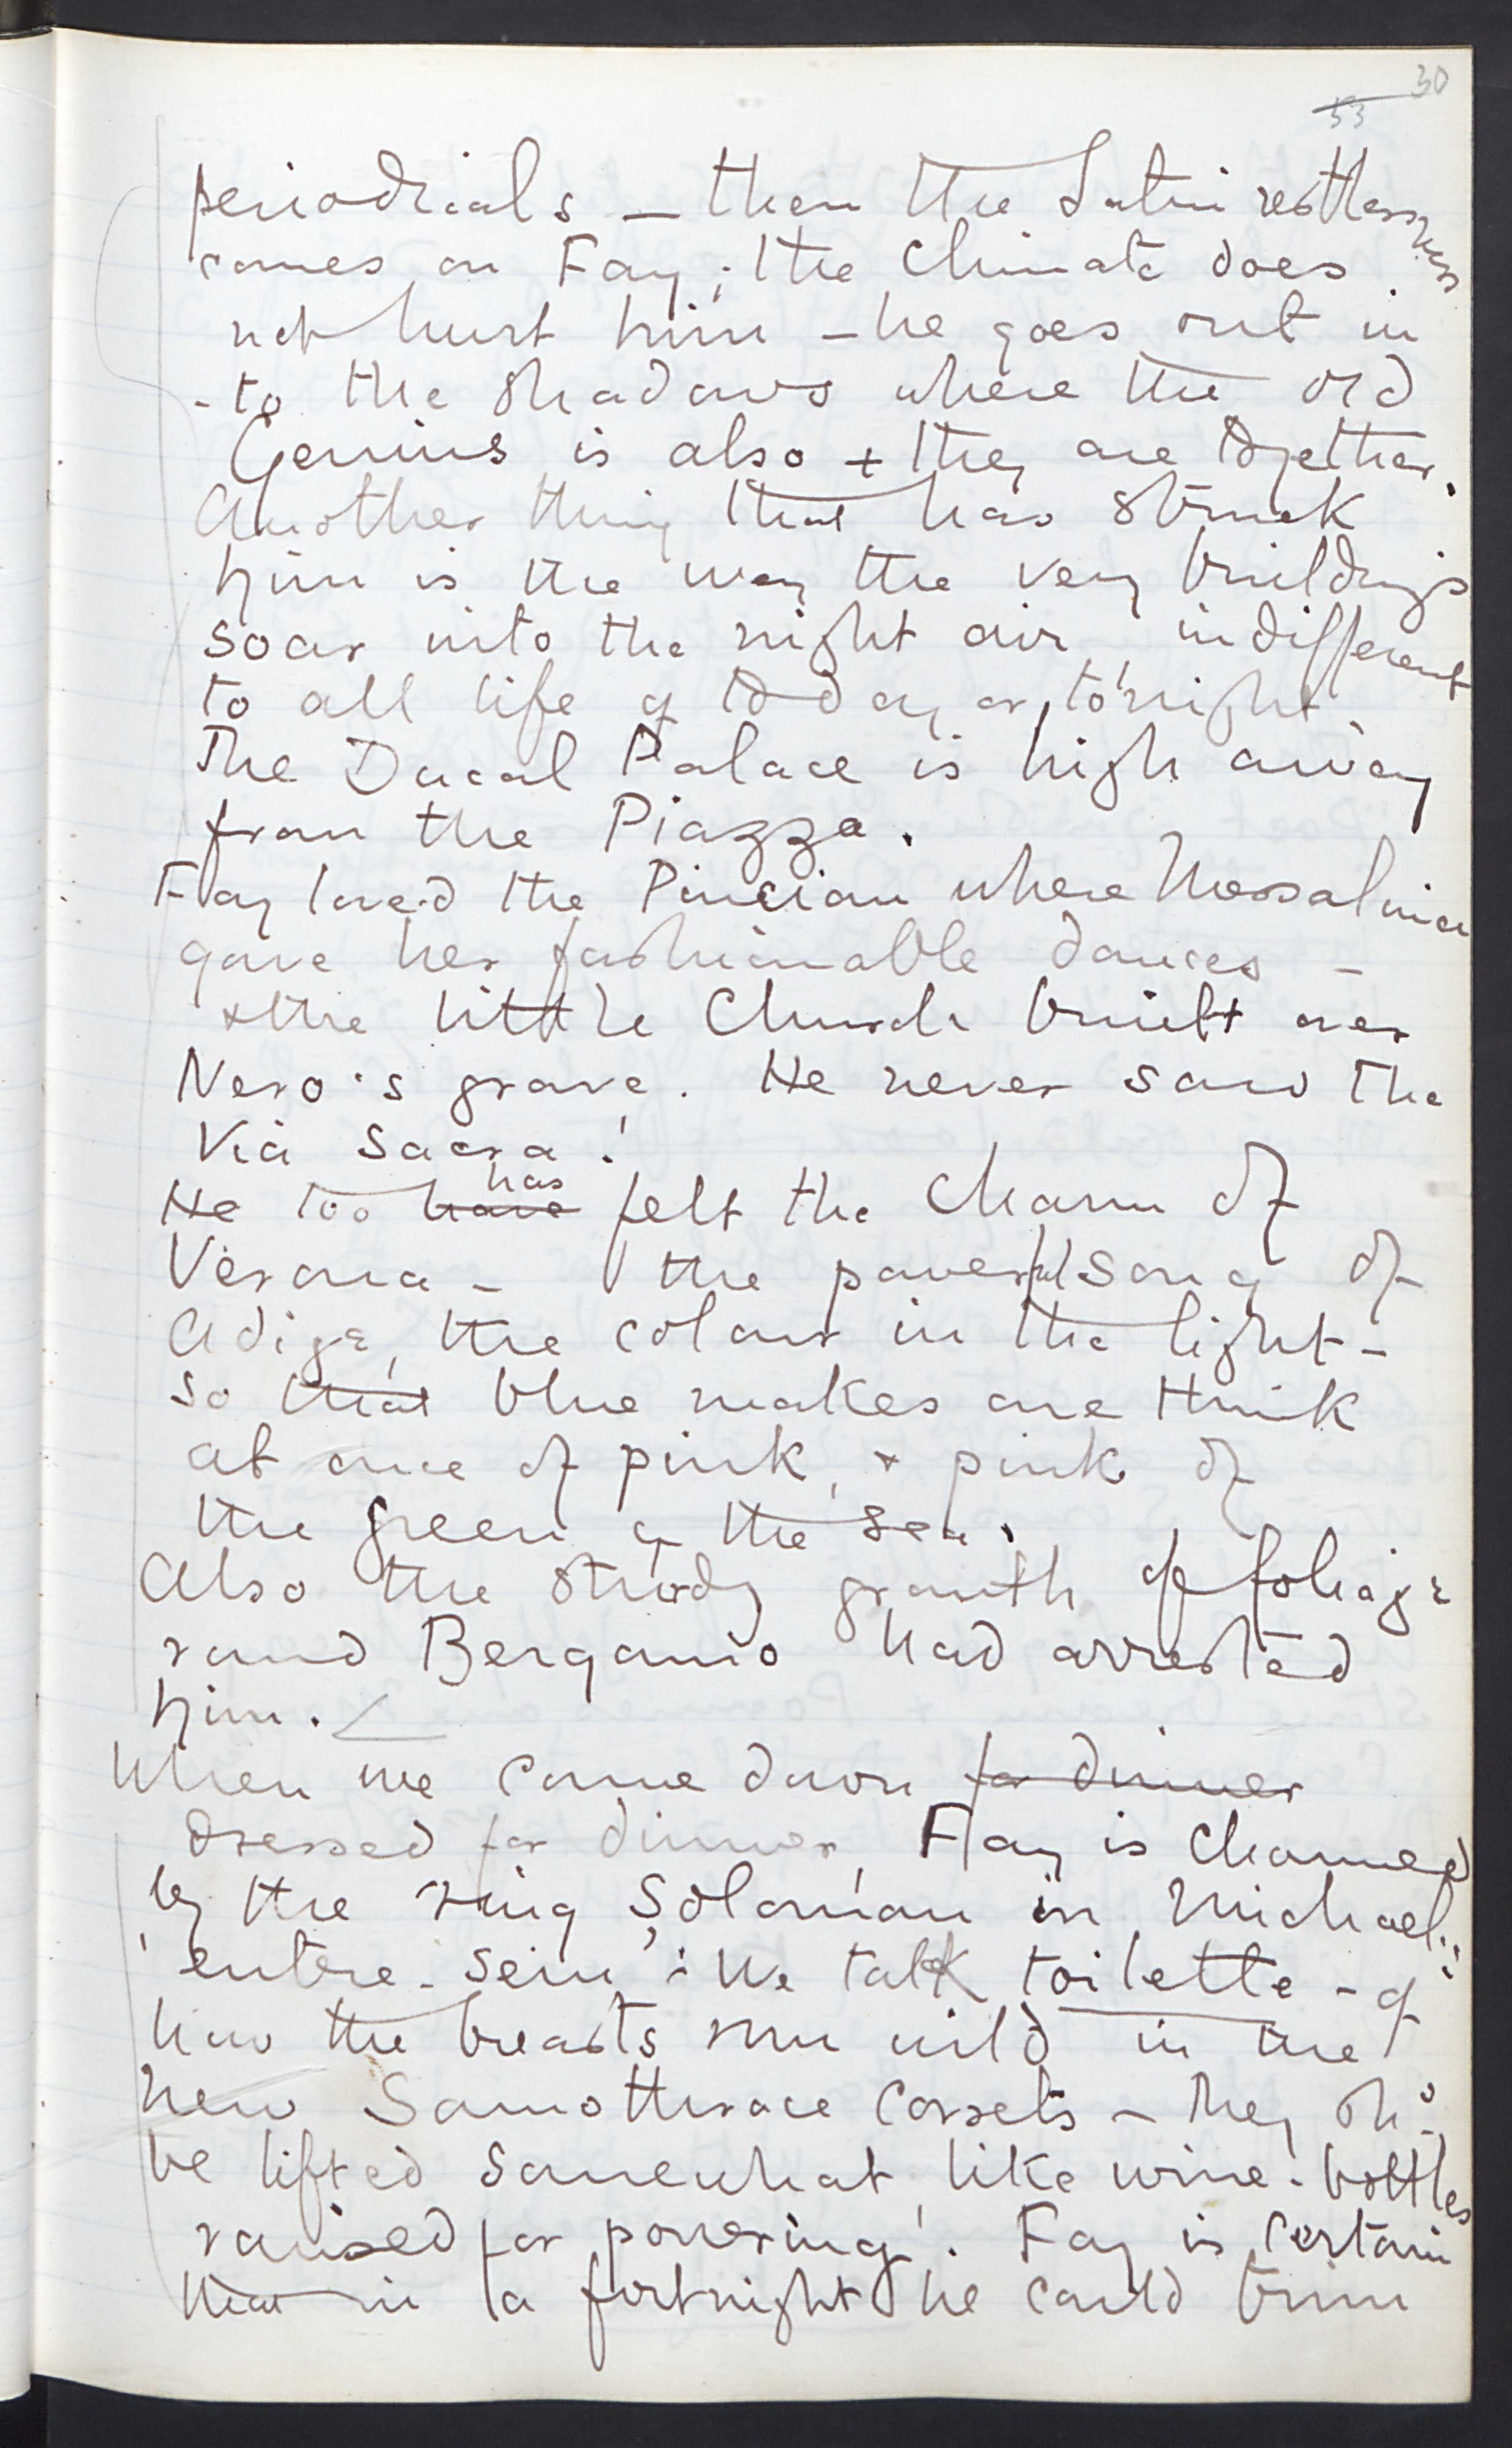 30
53
periodicals — then the Latin restlessness
comes on Fay; the climate does
not hurt him — he goes out in
-to the shadows where the old
Genius is also + they are together.
Another thing that has struck
him is the way the very buildings
soar into the night air, indifferent
to all life of today or to'night.
The Ducal Palace is high away
from the Piazza.
Fay loved the Pincian where Messalina
gave her fashionable dances —
+ the little Church built over
Nero's grave. He never saw the
Via Sacra!
has
He too have felt the charm of
Verona — the powerful song of
Adige, the colour in the light —
so that blue makes one think
at once of pink, + pink of
the green of the sea.
Also the sturdy growth of foliage
round Bergamo had arrested
him.
When we come down for dinner
dressed for dinner, Fay is charmed
by the ring, Soloman in Michael's
'entre-sein': We talk toilette - of
how the breasts run wild in the
new Samothrace corsets — they shd
be lifted somewhat like wine-bottles
raised for pouring! Fay is certain
that in a fortnight he could trim